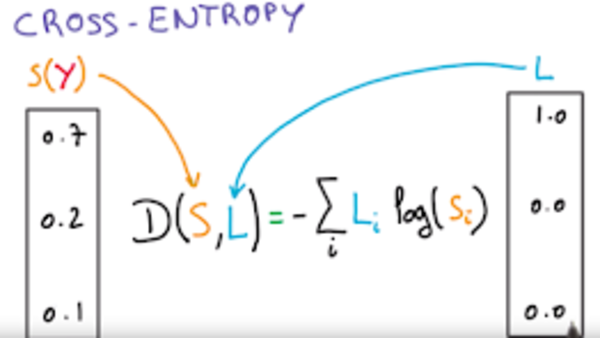 CROSS-ENTROPY
S(Y)
L
0.7
1.0
0.2
D(S,L) = - ∑ᵢ Lᵢ log(Sᵢ)
0.0
0.1
0.0